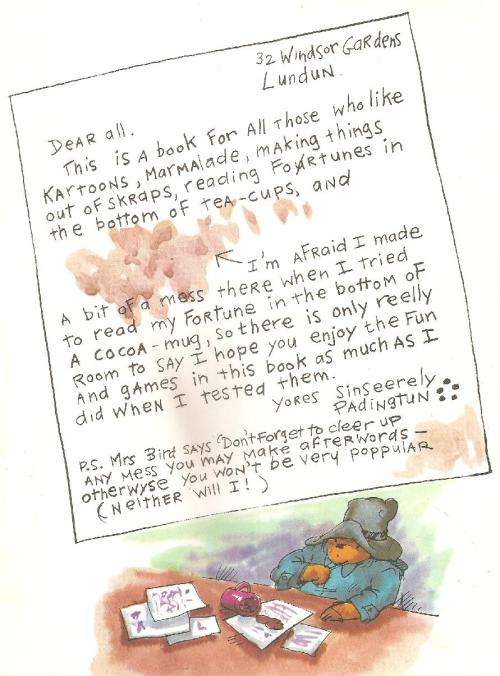 32 Windsor Gardens
Lundun.
Dear all.
This is a book for all those who like
Kartoons, Marmalade, making things
out of skraps, reading Foartunes in
the bottom of tea-cups, and
I'm afraid I made
a bit of a mess there when I tried
to read my fortune in the bottom of
a cocoa-mug, so there is only reelly
room to say I hope you enjoy the fun
and games in this book as much as I
did when I tested them.
Yores Sinseerely
Padingtun
P.S. Mrs Bird says "Don't forget to cleer up
any mess you may make afterwords –
otherwyse you won't be very poppular
(Neither will I!)